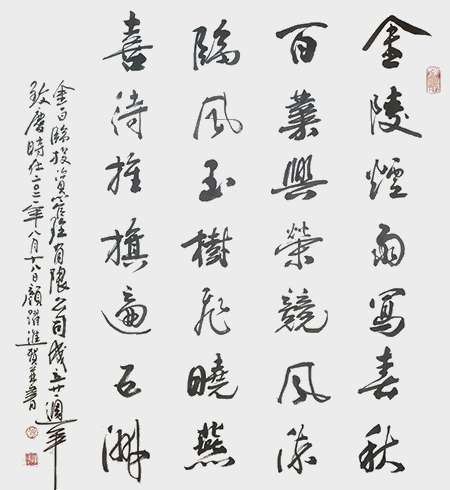 金陵煙雨寫春秋
百業興榮競風流
臨風玉樹飛曉燕
喜待旌旗遍五洲
金百臨投資管理有限公司成立廿週年
致慶時在二〇二一年八月廿八日顧躍進賀並書